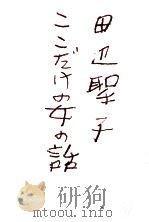 田辺聖子
ここだけの女の話
研狗
mtoou.info